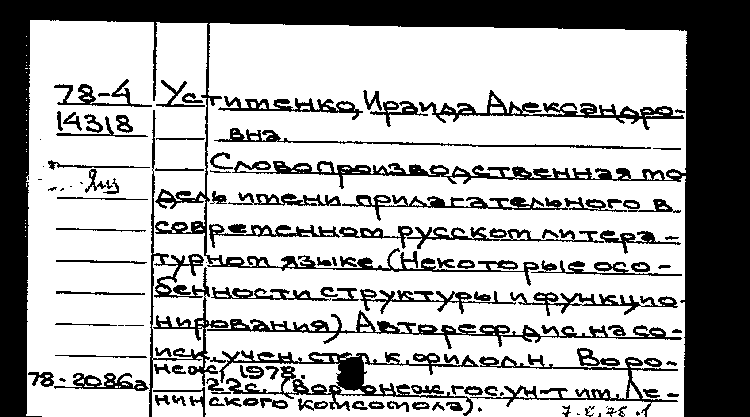 78-4 Устименко, Ираида Александро-
14318 вна.
Словопроизводственная мо
Яз дель имени прилагательного в
современном русском литера-
турном языке. (Некоторые осо-
бенности структуры и функцио-
нирования). Автореф. дис. на со-
иск. учен. степ. к. филол. н. Воро-
неж, 1978.
78-2086а 22с. (Воронеж. гос. ун-т им. Ле-
нинского комсомола).